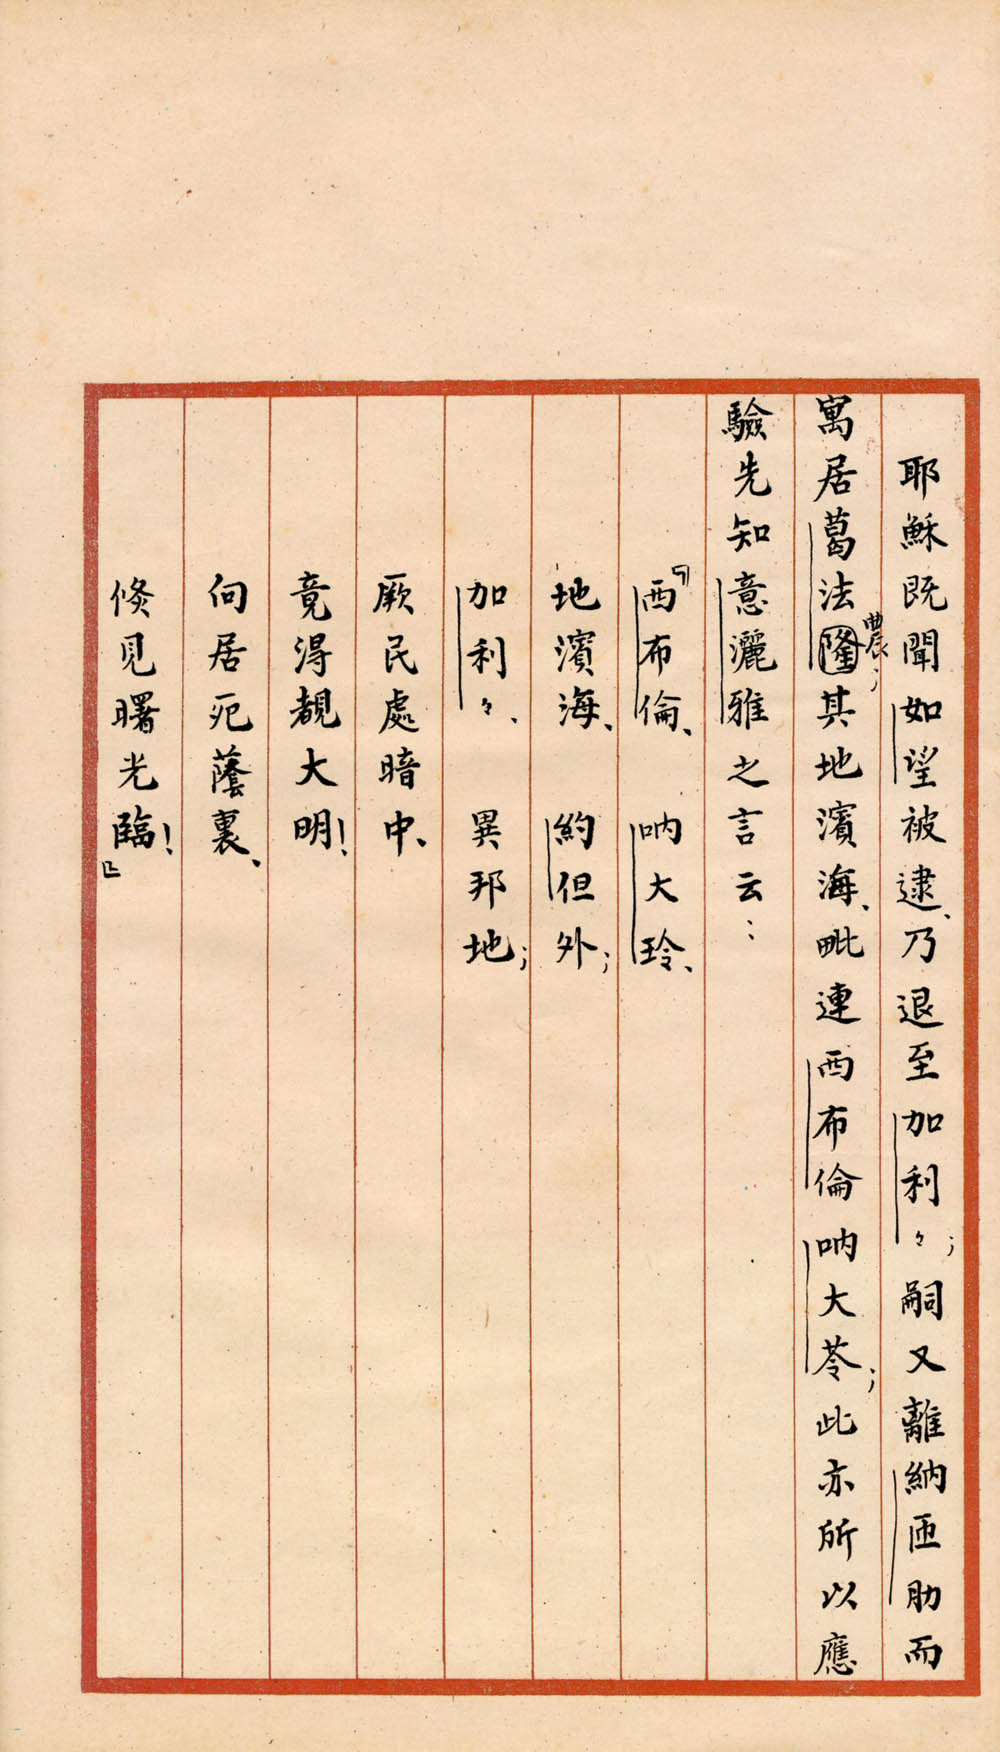 耶穌既聞如望被逮、乃退至加利々；嗣又離納匝肋而
寓居葛法隆農；其地濱海、毗連西布倫吶大苓；此亦所以應
驗先知意灑雅之言云：
『西布倫、吶大玲、
地濱海、約但外；
加利々、異邦地；
厥民處暗中、
竟得覩大明！
向居死蔭裏、
倏見曙光臨！』